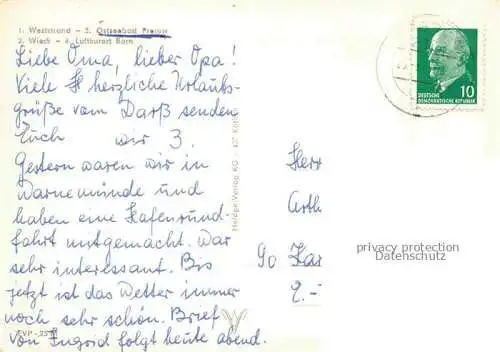 1. Weststrand - 3. Ostseebad Prerow
2. Wieck - 4. Luftkurort Born
Liebe Oma, lieber Opa!
Viele herzliche Urlaubs-
grüße vom Darß senden
Euch wir 3.
Gestern waren wir in
Warnemünde und
haben eine Hafenrund-
fahrt mitgemacht. War
sehr interessant. Bis
jetzt ist das Wetter immer
noch sehr schön. Brief
von Ingrid folgt heute abend.
Herr
Arth
90 Kar
2.-
DEUTSCHE
DEMOKRATISCHE REPUBLIK
10
privacy protection
Datenschutz